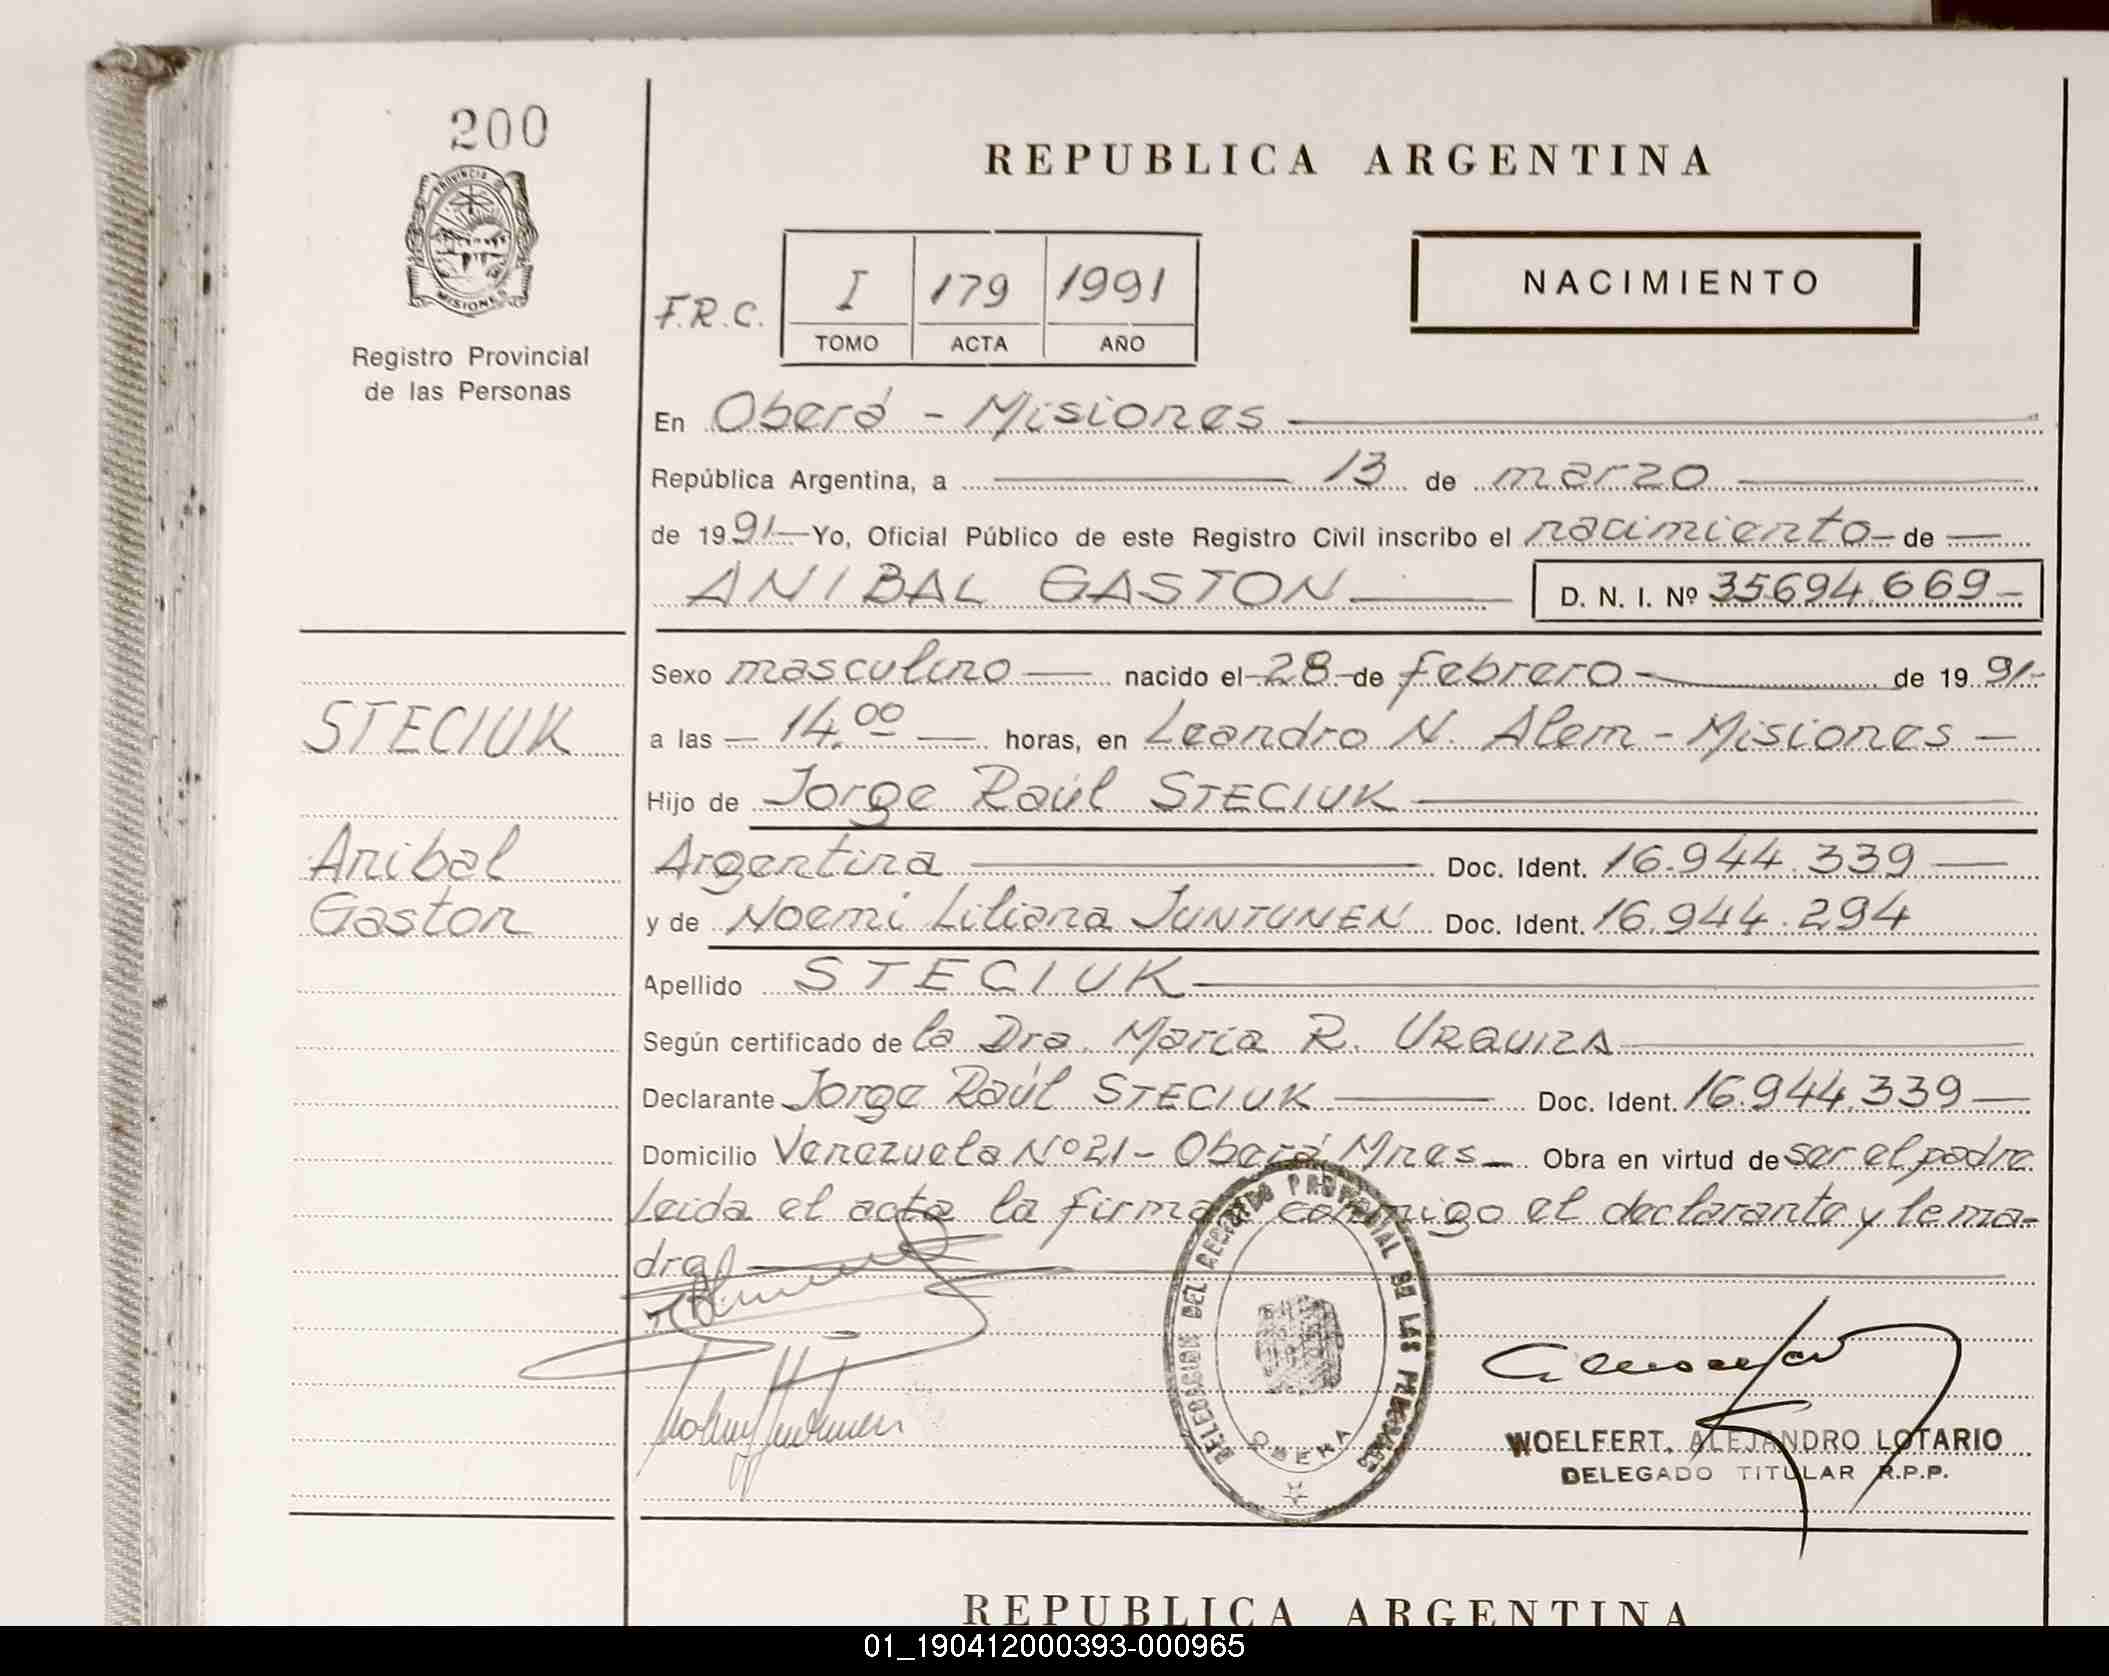 200
PROVINCIA DE
MISIONES
Registro Provincial
de las Personas
REPUBLICA ARGENTINA
F.R.C. I 179 1991
TOMO ACTA AÑO
NACIMIENTO
En Oberá - Misiones
República Argentina, a 13 de marzo
de 1991 Yo, Oficial Público de este Registro Civil inscribo el nacimiento de
ANIBAL GASTON D. N. I. Nº 35694.669
Sexo masculino nacido el 28 de febrero de 1991
STECIUK
a las 14.00 horas, en Leandro N. Alem - Misiones
Hijo de Jorge Raúl STECIUK
Anibal
Gaston
Argentina Doc. Ident. 16.944.339
y de Noemí Liliana JUNTUNEN Doc. Ident. 16.944.294
Apellido STECIUK
Según certificado de la Dra. María R. URQUIZA
Declarante Jorge Raúl STECIUK Doc. Ident. 16.944.339
Domicilio Venezuela Nº 21 - Oberá Mnes Obra en virtud de ser el padre
Leida el acta la firman conmigo el declarante y la ma-
dre
DELEGACION DEL REGISTRO PROVINCIAL DE LAS PERSONAS
OBERA
WOELFERT, ALEJANDRO LOTARIO
DELEGADO TITULAR R.P.P.
REPUBLICA ARGENTINA
01_190412000393-000965